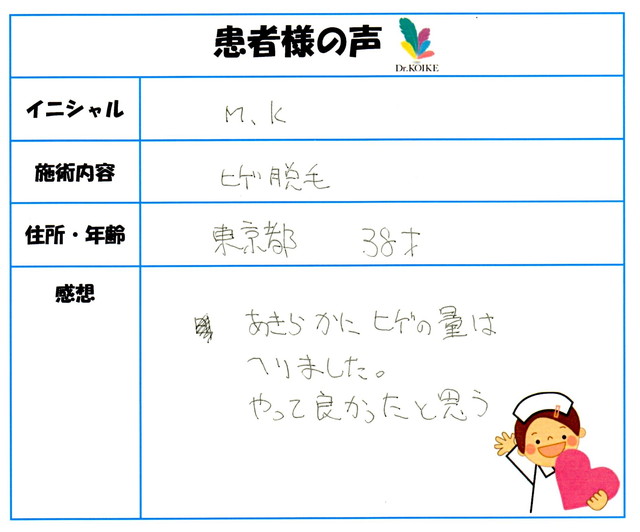 患者様の声
Dr.KOIKE
イニシャル
M、K
施術内容
ヒゲ脱毛
住所・年齢
東京都 38才
感想
あきらかにヒゲの量は
へりました。
やって良かったと思う